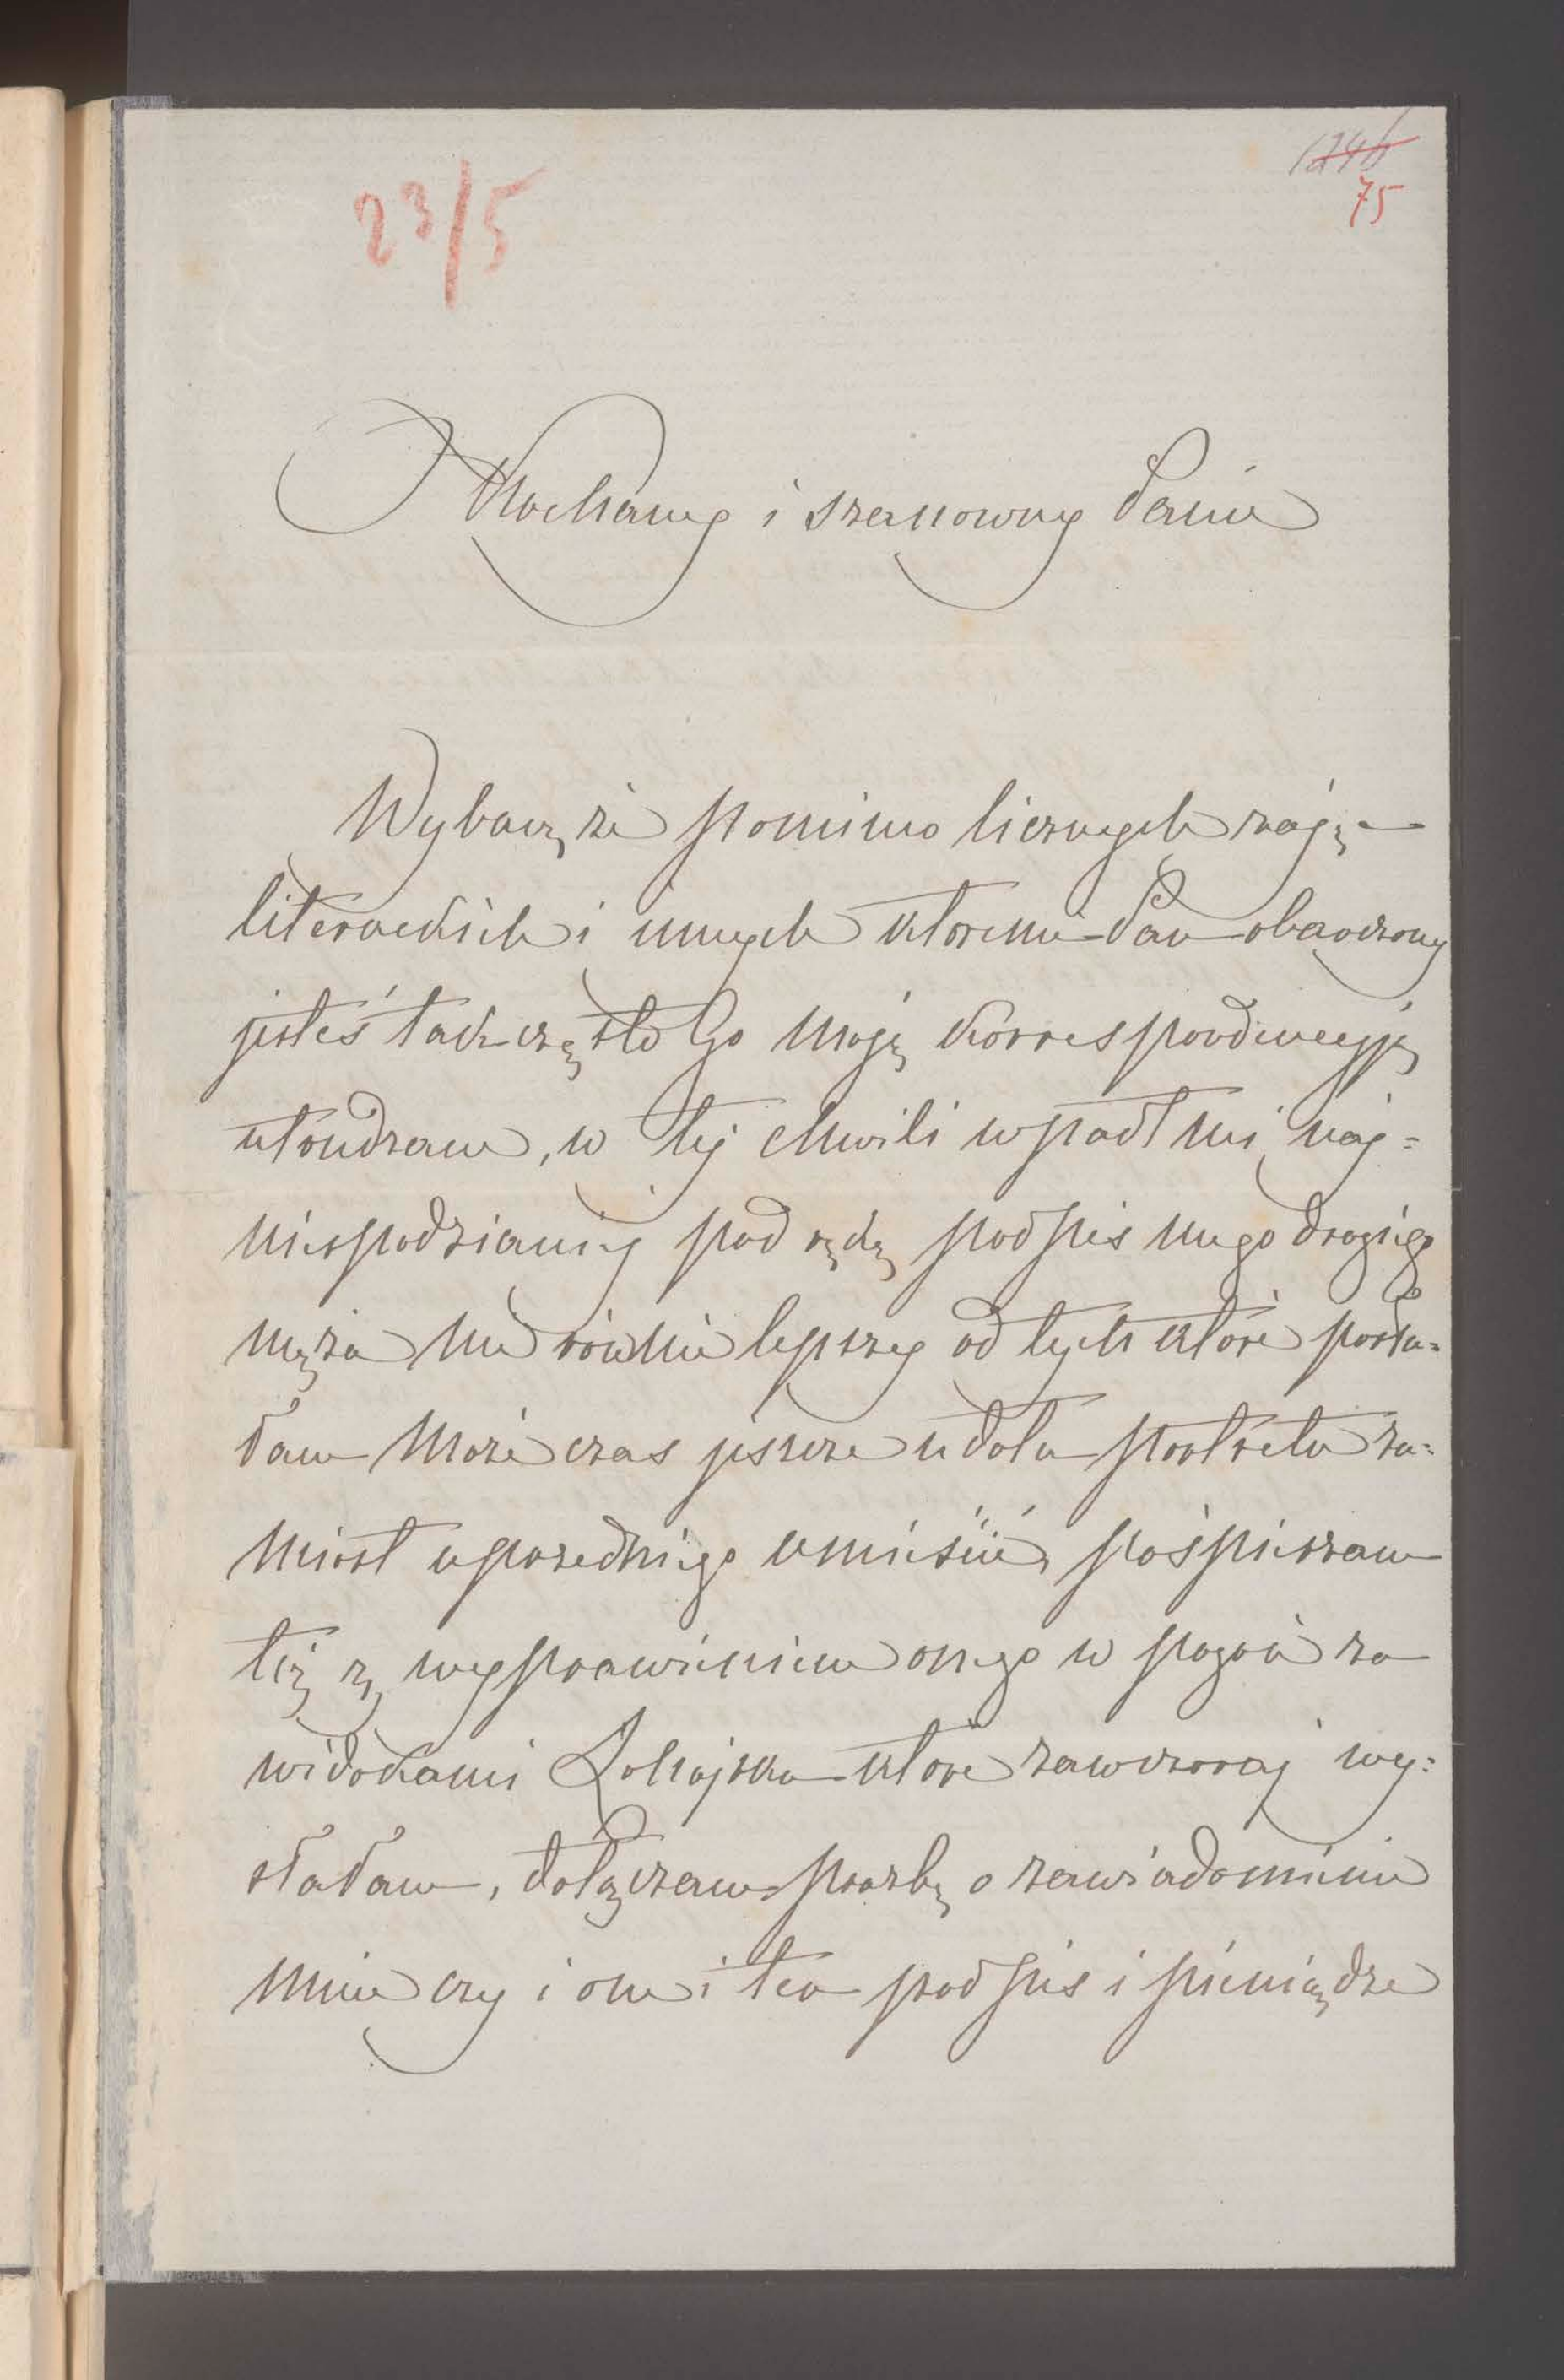 124b
75
23/5
Kochany i szanowny Panie
Wybacz, że pomimo licznych zaję-
literackich i innych któremi Pan obarczony
jesteś tak często Go moją korrespondencyją
utrudzam, w tej chwili wpadł mi naj=
niespodzianiej pod rękę podpis mego drogiego
męża nie równie lepszy od tych które posła=
łam Może czas jeszcze u dołu portretu za=
miast uprzedniego umieścić, pośpieszam
też z wyprawieniem onego w pogoń za
widokami Łohojska które zawczoraj wy=
słałam, dołączam prośbę o zawiadomienie
mnie czy i one i ten podpis i pieniądze